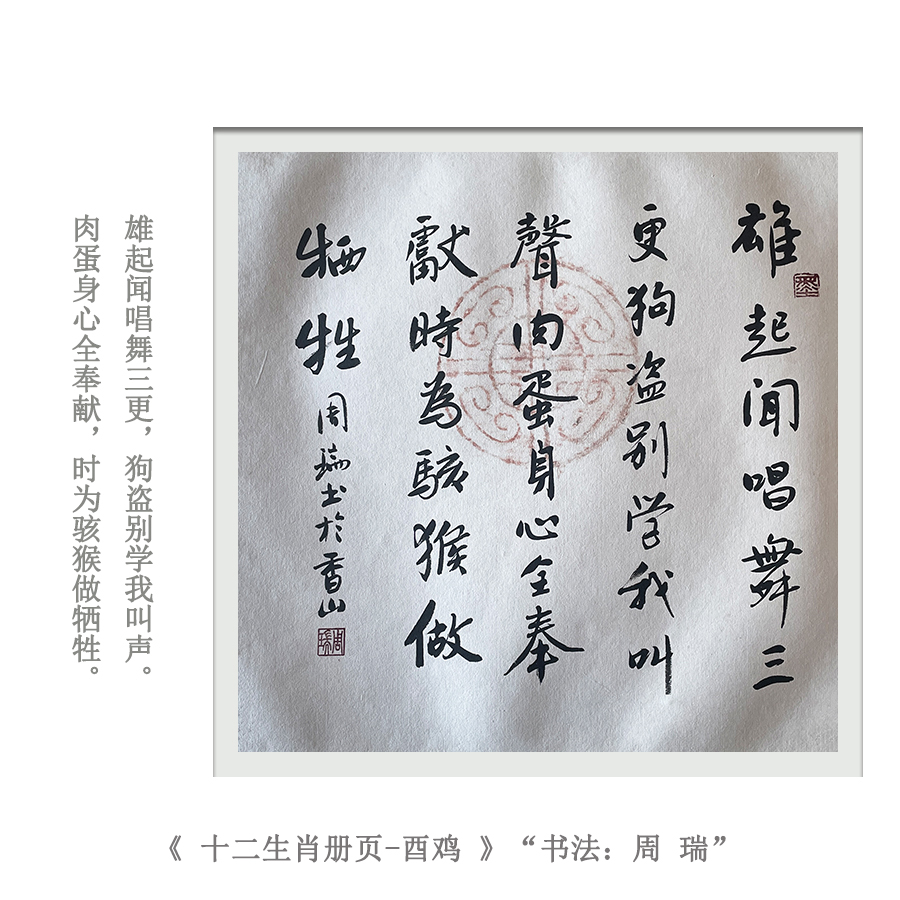 雄起闻唱舞三更，狗盗别学我叫声。
肉蛋身心全奉献，时为骇猴做牺牲。
雄起闻唱舞三
更狗盗别学我叫
聲肉蛋身心全奉
獻時為駭猴做
牺牲
周瑞书於香山
周瑞
《 十二生肖册页-酉鸡 》“书法：周 瑞”